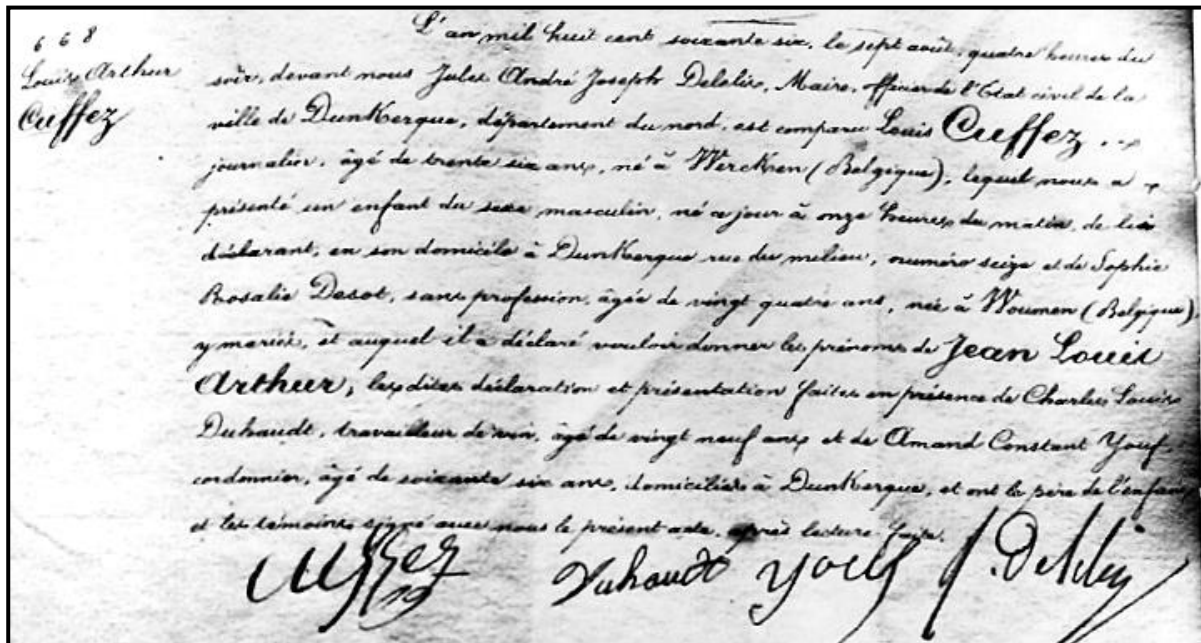 668
Louis Arthur
Cuffez
L'an mil huit cent soixante six, le sept août, quatre heures du
soir, devant nous Jules André Joseph Delelis, Maire, officier de l'Etat civil de la
ville de DunKerque, département du nord, est comparu Louis Cuffez
journalier, âgé de trente six ans, né à Wercken (Belgique), lequel nous a
présenté un enfant du sexe masculin, né ce jour à onze heures du matin, de lui
déclarant, en son domicile à DunKerque rue du milieu, numéro seize et de Sophie
Rosalie Desot, sans profession, âgée de vingt quatre ans, née à Woumen (Belgique),
y mariés, et auquel il a déclaré vouloir donner les prénoms de Jean Louis
Arthur, les dites déclaration et présentation faites en présence de Charles Louis
Duhaudt, travailleur de vin, âgé de vingt neuf ans et de Amand Constant Youf
cordonnier, âgé de soixante six ans, domiciliés à DunKerque, et ont le père de l'enfant
et les témoins signé avec nous le présent acte, après lecture faite.
Cuffez Duhaudt Youf J. Delelis